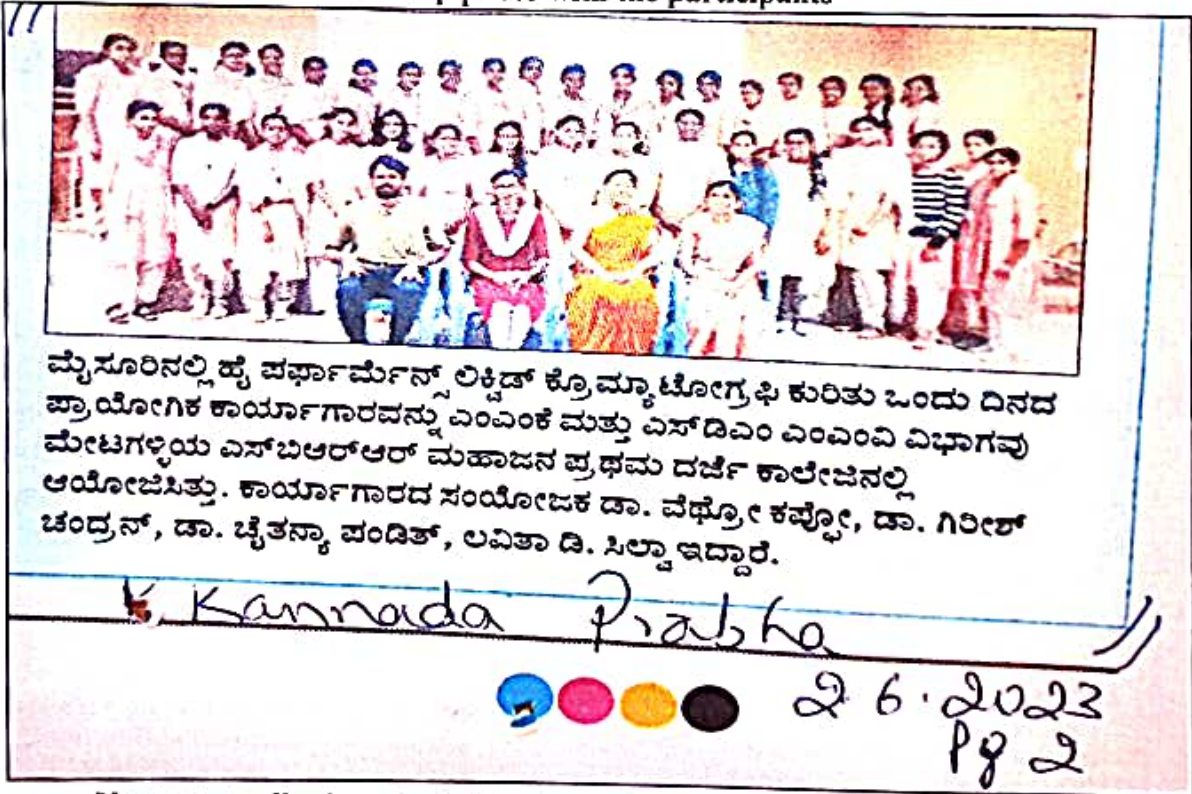 with the participants
ಮೈಸೂರಿನಲ್ಲಿ ಹೈ ಪರ್ಫಾರ್ಮೆನ್ಸ್ ಲಿಕ್ವಿಡ್ ಕ್ರೊಮ್ಯಾಟೋಗ್ರಫಿ ಕುರಿತು ಒಂದು ದಿನದ
ಪ್ರಾಯೋಗಿಕ ಕಾರ್ಯಾಗಾರವನ್ನು ಎಂಎಂಕೆ ಮತ್ತು ಎಸ್‌ಡಿಎಂ ಎಂಎಂವಿ ವಿಭಾಗವು
ಮೇಟಗಳ್ಳಿಯ ಎಸ್‌ಬಿಆರ್‌ಆರ್ ಮಹಾಜನ ಪ್ರಥಮ ದರ್ಜೆ ಕಾಲೇಜಿನಲ್ಲಿ
ಆಯೋಜಿಸಿತ್ತು. ಕಾರ್ಯಾಗಾರದ ಸಂಯೋಜಕ ಡಾ. ವೆಥ್ರೋ ಕಪ್ಫೋ, ಡಾ. ಗಿರೀಶ್
ಚಂದ್ರನ್, ಡಾ. ಚೈತನ್ಯಾ ಪಂಡಿತ್, ಲವಿತಾ ಡಿ. ಸಿಲ್ವಾ ಇದ್ದಾರೆ.
Kannada Prabha
2 6.2023
Pg 2